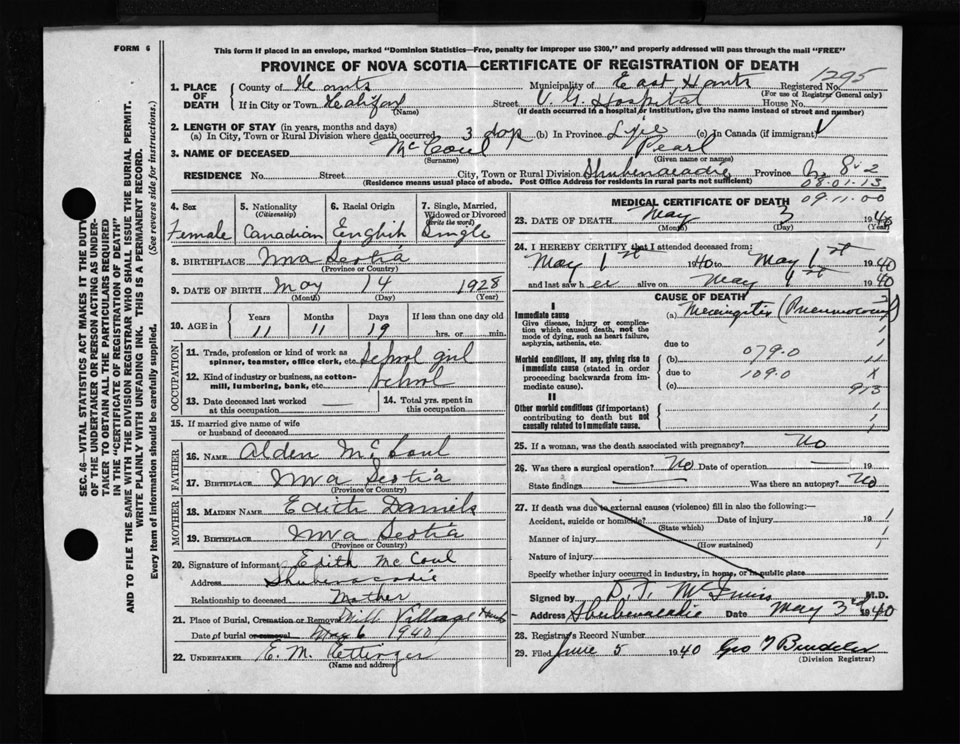 FORM 6
This form if placed in an envelope, marked "Dominion Statistics—Free, penalty for improper use $300," and properly addressed will pass through the mail "FREE"
PROVINCE OF NOVA SCOTIA—CERTIFICATE OF REGISTRATION OF DEATH
1295
1. PLACE OF DEATH County of Hants Municipality of East Hants Registered No.
(For use of Registrar General only)
If in City or Town Halifax Street V. G. Hospital House No.
(Name) (If death occurred in a hospital or institution, give the name instead of street and number)
2. LENGTH OF STAY (in years, months and days)
(a) In City, Town or Rural Division where death occurred 3 days (b) In Province Life (c) In Canada (if immigrant)
3. NAME OF DECEASED McCoul Pearl
(Surname) (Given name or names)
RESIDENCE No. Street City, Town or Rural Division Shubenacadie Province
(Residence means usual place of abode. Post Office Address for residents in rural parts not sufficient)
8-2
08-01-13
09-11-00
4. Sex Female
5. Nationality (Citizenship) Canadian
6. Racial Origin English
7. Single, Married, Widowed or Divorced (write the word) Single
8. BIRTHPLACE Nova Scotia
(Province or Country)
9. DATE OF BIRTH May 14 1928
(Month) (Day) (Year)
10. AGE in Years Months Days If less than one day old
11 11 19 hrs. or min.
OCCUPATION
11. Trade, profession or kind of work as spinner, teamster, office clerk, etc. School girl
12. Kind of industry or business, as cotton-mill, lumbering, bank, etc. School
13. Date deceased last worked at this occupation —
14. Total yrs. spent in this occupation
15. If married give name of wife or husband of deceased
FATHER
16. NAME Alden McCoul
17. BIRTHPLACE Nova Scotia
(Province or Country)
MOTHER
18. MAIDEN NAME Edith Daniels
19. BIRTHPLACE Nova Scotia
(Province or Country)
20. Signature of informant Edith McCoul
Address Shubenacadie
Relationship to deceased Mother
21. Place of Burial, Cremation or Removal Mill Village Hants
Date of burial or removal May 6 1940
22. UNDERTAKER E. M. Rettinger
(Name and address)
MEDICAL CERTIFICATE OF DEATH
23. DATE OF DEATH May 3 1940
(Month) (Day) (Year)
24. I HEREBY CERTIFY that I attended deceased from:
May 1st 1940 to May 1st 1940
and last saw her alive on May 1st 1940
CAUSE OF DEATH
I
Immediate cause (a) Meningitis
Give disease, injury or complication which caused death, not the mode of dying, such as heart failure, asphyxia, asthenia, etc.
due to
Morbid conditions, if any, giving rise to immediate cause (stated in order proceeding backwards from immediate cause).
(b) 079.0
due to 109.0
(c)
913
II
Other morbid conditions (if important) contributing to death but not causally related to immediate cause.
25. If a woman, was the death associated with pregnancy? No
26. Was there a surgical operation? No Date of operation — 19
State findings — Was there an autopsy? No
27. If death was due to external causes (violence) fill in also the following:—
Accident, suicide or homicide? Date of injury 19
(State which)
Manner of injury
(How sustained)
Nature of injury
Specify whether injury occurred in industry, in home, or in public place
Signed by M.D.
Address Shubenacadie Date May 3rd 1940
28. Registrar's Record Number
29. Filed June 5 1940 Geo
(Division Registrar)
SEC. 46—VITAL STATISTICS ACT MAKES IT THE DUTY OF THE UNDERTAKER OR PERSON ACTING AS UNDERTAKER TO OBTAIN ALL THE PARTICULARS REQUIRED IN THE "CERTIFICATE OF REGISTRATION OF DEATH" AND TO FILE THE SAME WITH THE DIVISION REGISTRAR WHO SHALL ISSUE THE BURIAL PERMIT.
WRITE PLAINLY WITH UNFADING INK. THIS IS A PERMANENT RECORD.
Every item of information should be carefully supplied. (See reverse side for instructions.)